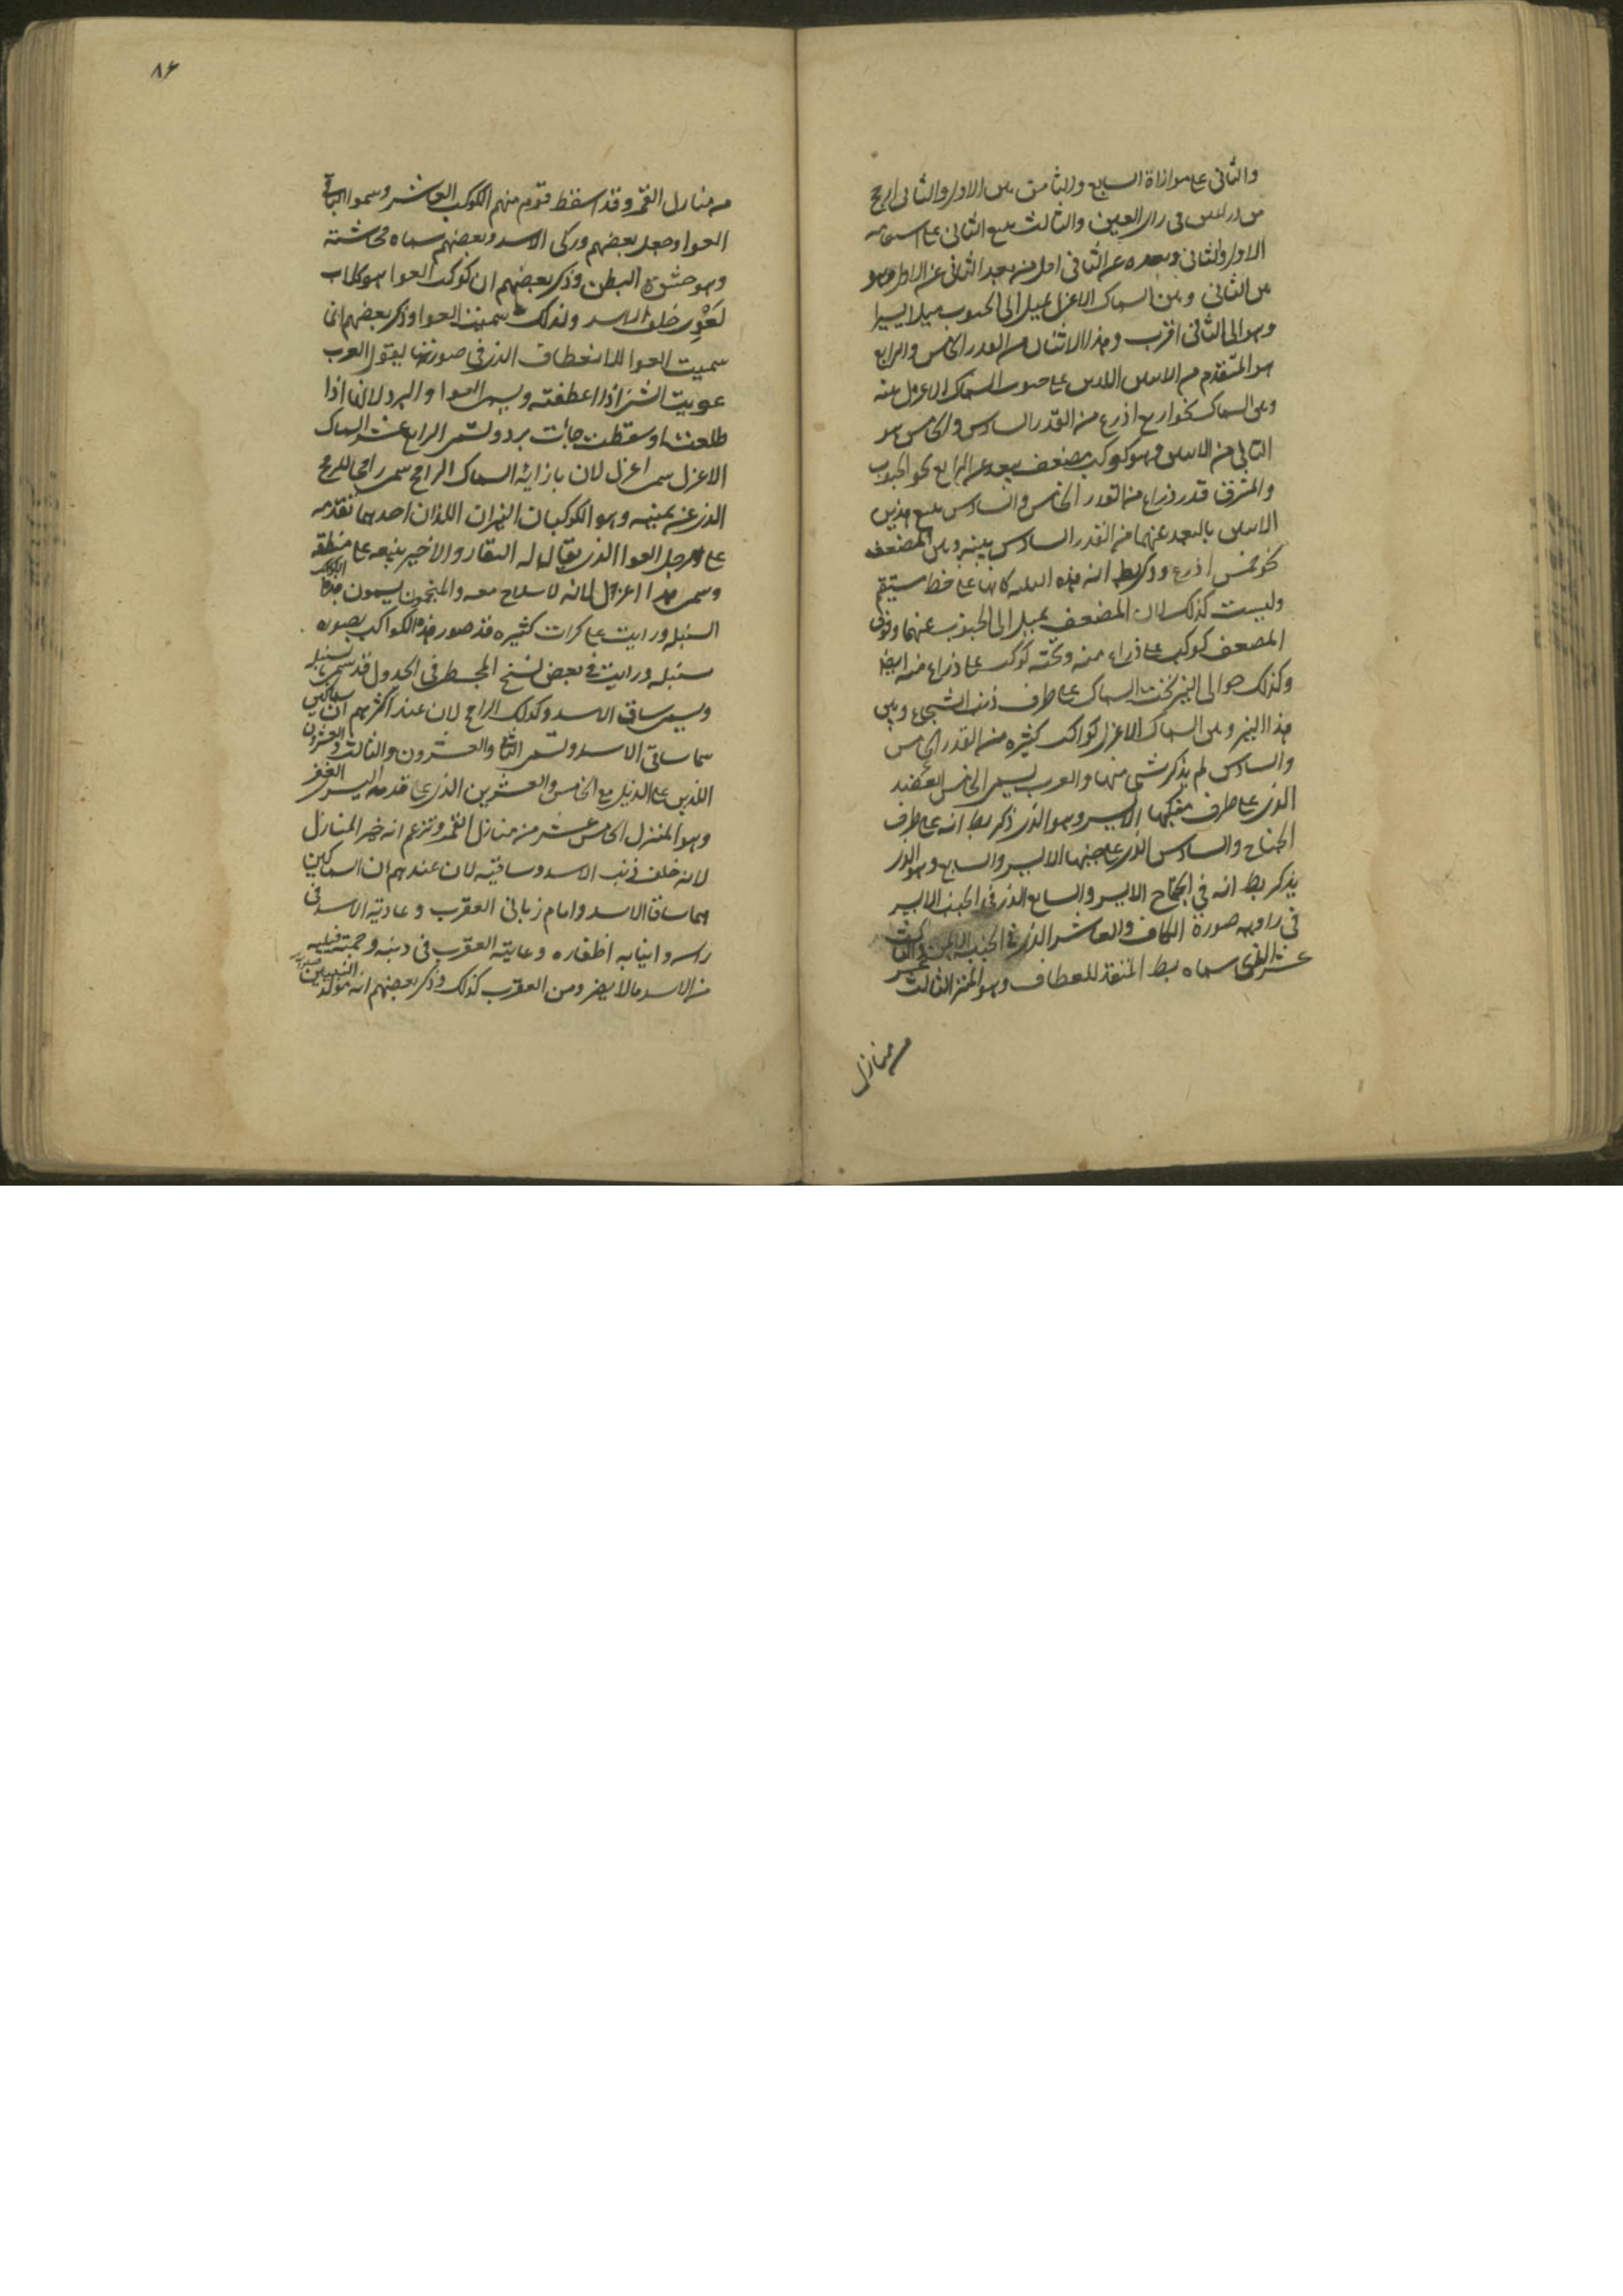 والثانى على موازاة السابع والثامن بين الاول والثانى ارجح
من ذراعين فى راى العين والثالث يتبع الثانى على استقامة
الاول والثانى وبعده عن الثانى اقل من بعد الثانى عن الاول وهو
بين الثانى وبين السماك الاعزل يميل الى الجنوب ميلا يسيرا
وهو الى الثانى اقرب وهذا الاثنان من القدر الخامس والرابع
هو المتقدم من الاثنين اللذين على جنوب السماك الاعزل بينه
وبين السماك نحو اربع اذرع من القدر السادس والخامس هو
التالى من الاثنين وهو كوكب مضعف يبعد عن الرابع نحو الجنوب
والمشرق قدر ذراع من القدر الخامس والسادس يتبع هذين
الاثنين بالبعد عنهما من القدر السادس بينه وبين المضعف
نحو خمس اذرع وذكر بط ان هذه الثلثة كانها على خط مستقيم
وليست كذلك لان المضعف يميل الى الجنوب عنهما وفوق
المضعف كوكب على ذراع منه وتحته كوكب على ذراع منه ايضا
وكذلك حوالى النير تحت السماك على طرف ذنب الشجاع وبين
هذا النير وبين السماك الاعزل كواكب كثيره من القدر الخامس
والسادس لم يذكر شى منها والعرب يسمى الخامس
الذى على طرف منكبها الايسر وهو الذى ذكر بط انه على طرف
الجناح والسادس الذى على جنبها الايسر والسابع وهو الذى
يذكر بط انه فى الجناح الايسر والسابع الذى فى الجنب الايسر
فى زاويه صورة الكاف والعاشر الذى فى الجنب الايمن والثالث
عشر الذى سماه بط المتقدم للقطاف وهو المنزل الثالث عشر
من منازل
٨۶
من منازل القمر وقد اسقط قوم منهم الكوكب العاشر وسموا الباقى
العوا وجعل بعضهم وركى الاسد وبعضهم سماه محاشته
وهو حشوة البطن وذكر بعضهم ان كوكب العوا هو كلاب
تعوى خلف الاسد ولذلك سميت العوا وذكر بعضهم انما
سميت العوا للانعطاف الذى فى صورتها يقول العرب
عويت الشى اذا اعطفته ويسمى العوا والبرد لانها اذا
طلعت او سقطت جاءت ببرد ويسمى الرابع عشر السماك
الاعزل سمى اعزل لان بازائه السماك الرامح سمى رامحا للرمح
الذى عن يمينه وهو الكوكبان النيران اللذان احدهما تقدمه
على رجل العوا الذى يقال له البقار والاخير يتبعه على منطقه
وسمى هذا اعزل لانه لا سلاح معه والمنجمون يسمون هذا الكوكب
السنبله ورايت على كرات كثيره قد صور هذه الكواكب بصورة
سنبله ورايت فى بعض نسخ المجسطى فى الجدول قد سمى سنبله
ويسمى ساق الاسد وكذلك الرامح لان عند اكثرهم ان سماكين
هما ساقى الاسد ويسمى الثانى والعشرون والثالث والعشرون
اللذين على الذيل مع الخامس والعشرين الذى على قدمه اليسرى الغفر
وهو المنزل الخامس عشر من منازل القمر وتزعم انه خير المنازل
لانه خلف ذنب الاسد وساقيه لان عندهم ان السماكين
هما ساقا الاسد وامام زبانى العقرب وعادية الاسد فى
راسه وانيابه اظفاره وعادية العقرب فى ذنبه وحمته فيليه
من الاسد ما لا يضر ومن العقرب كذلك وذكر بعضهم انه مولد النبيين